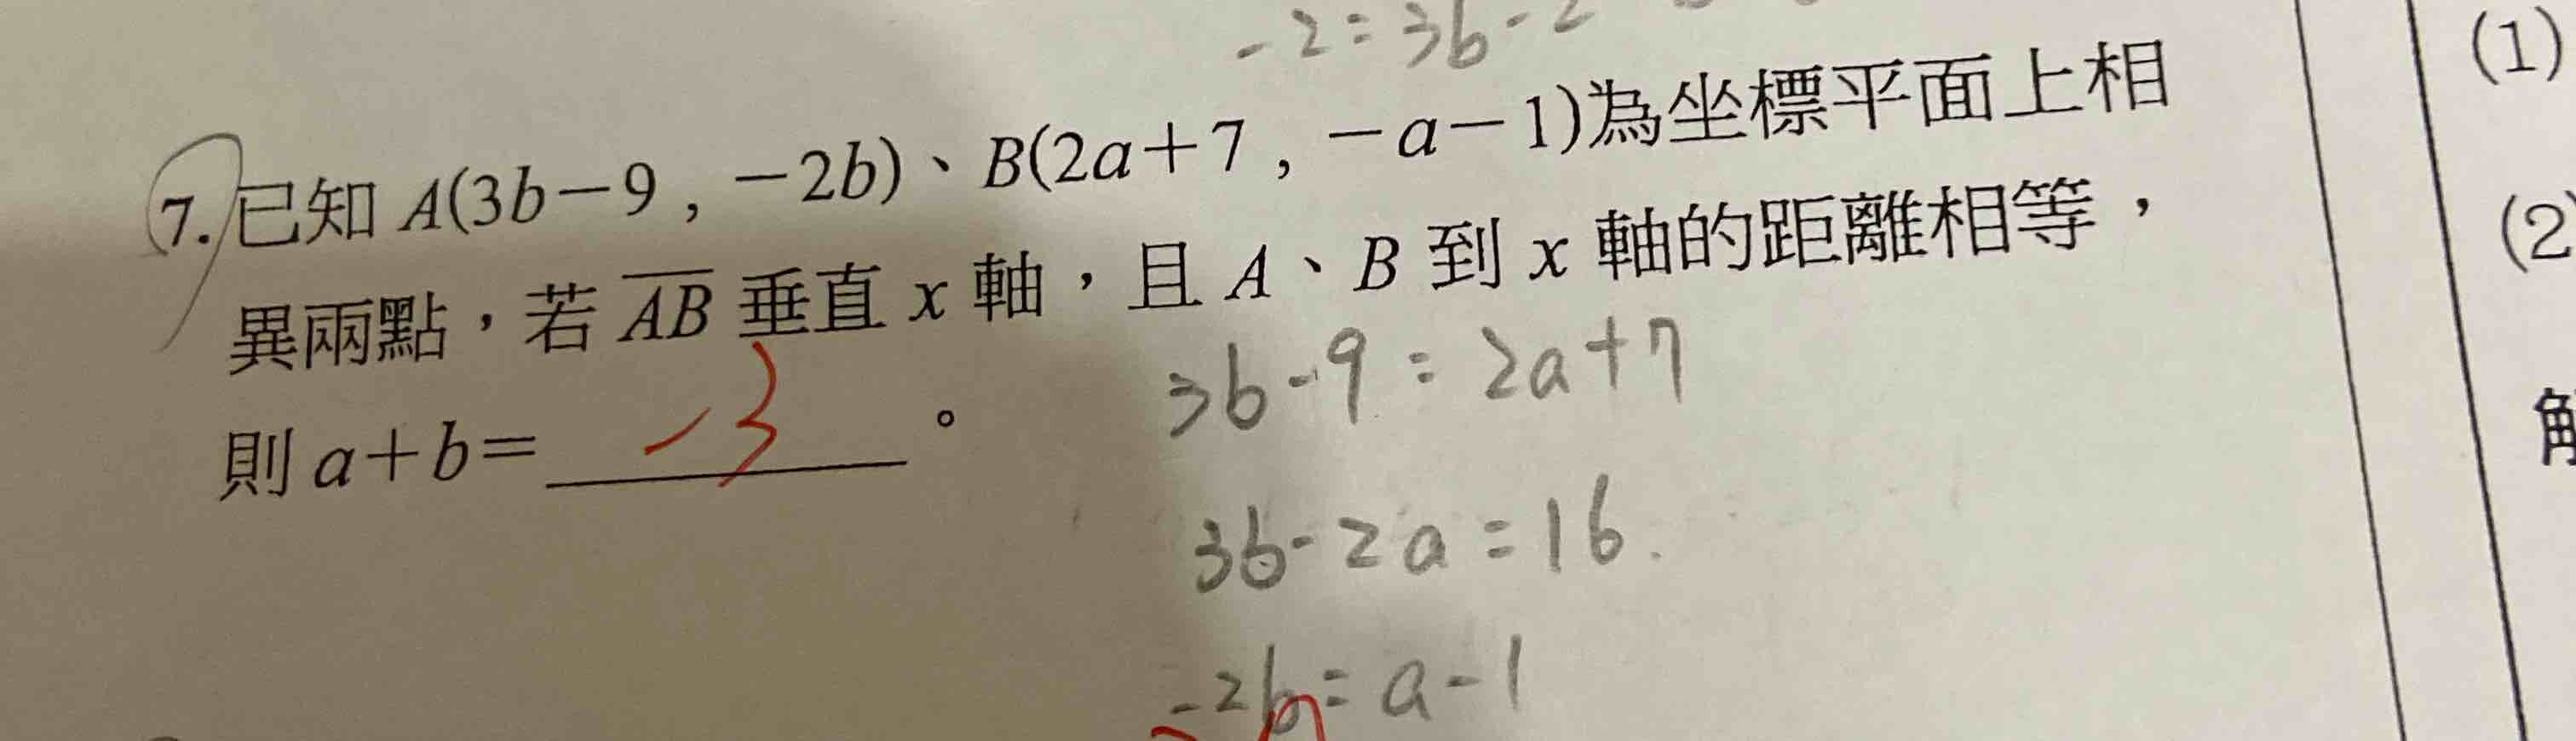 -2=3b-2
(1)
7. 已知 A(3b-9, -2b)、B(2a+7, -a-1)為坐標平面上相
(2)
異兩點,若 \overline{AB} 垂直 x 軸,且 A、B 到 x 軸的距離相等,
3b-9=2a+7
則 a+b= -3 。
3b-2a=16.
-2b=a-1